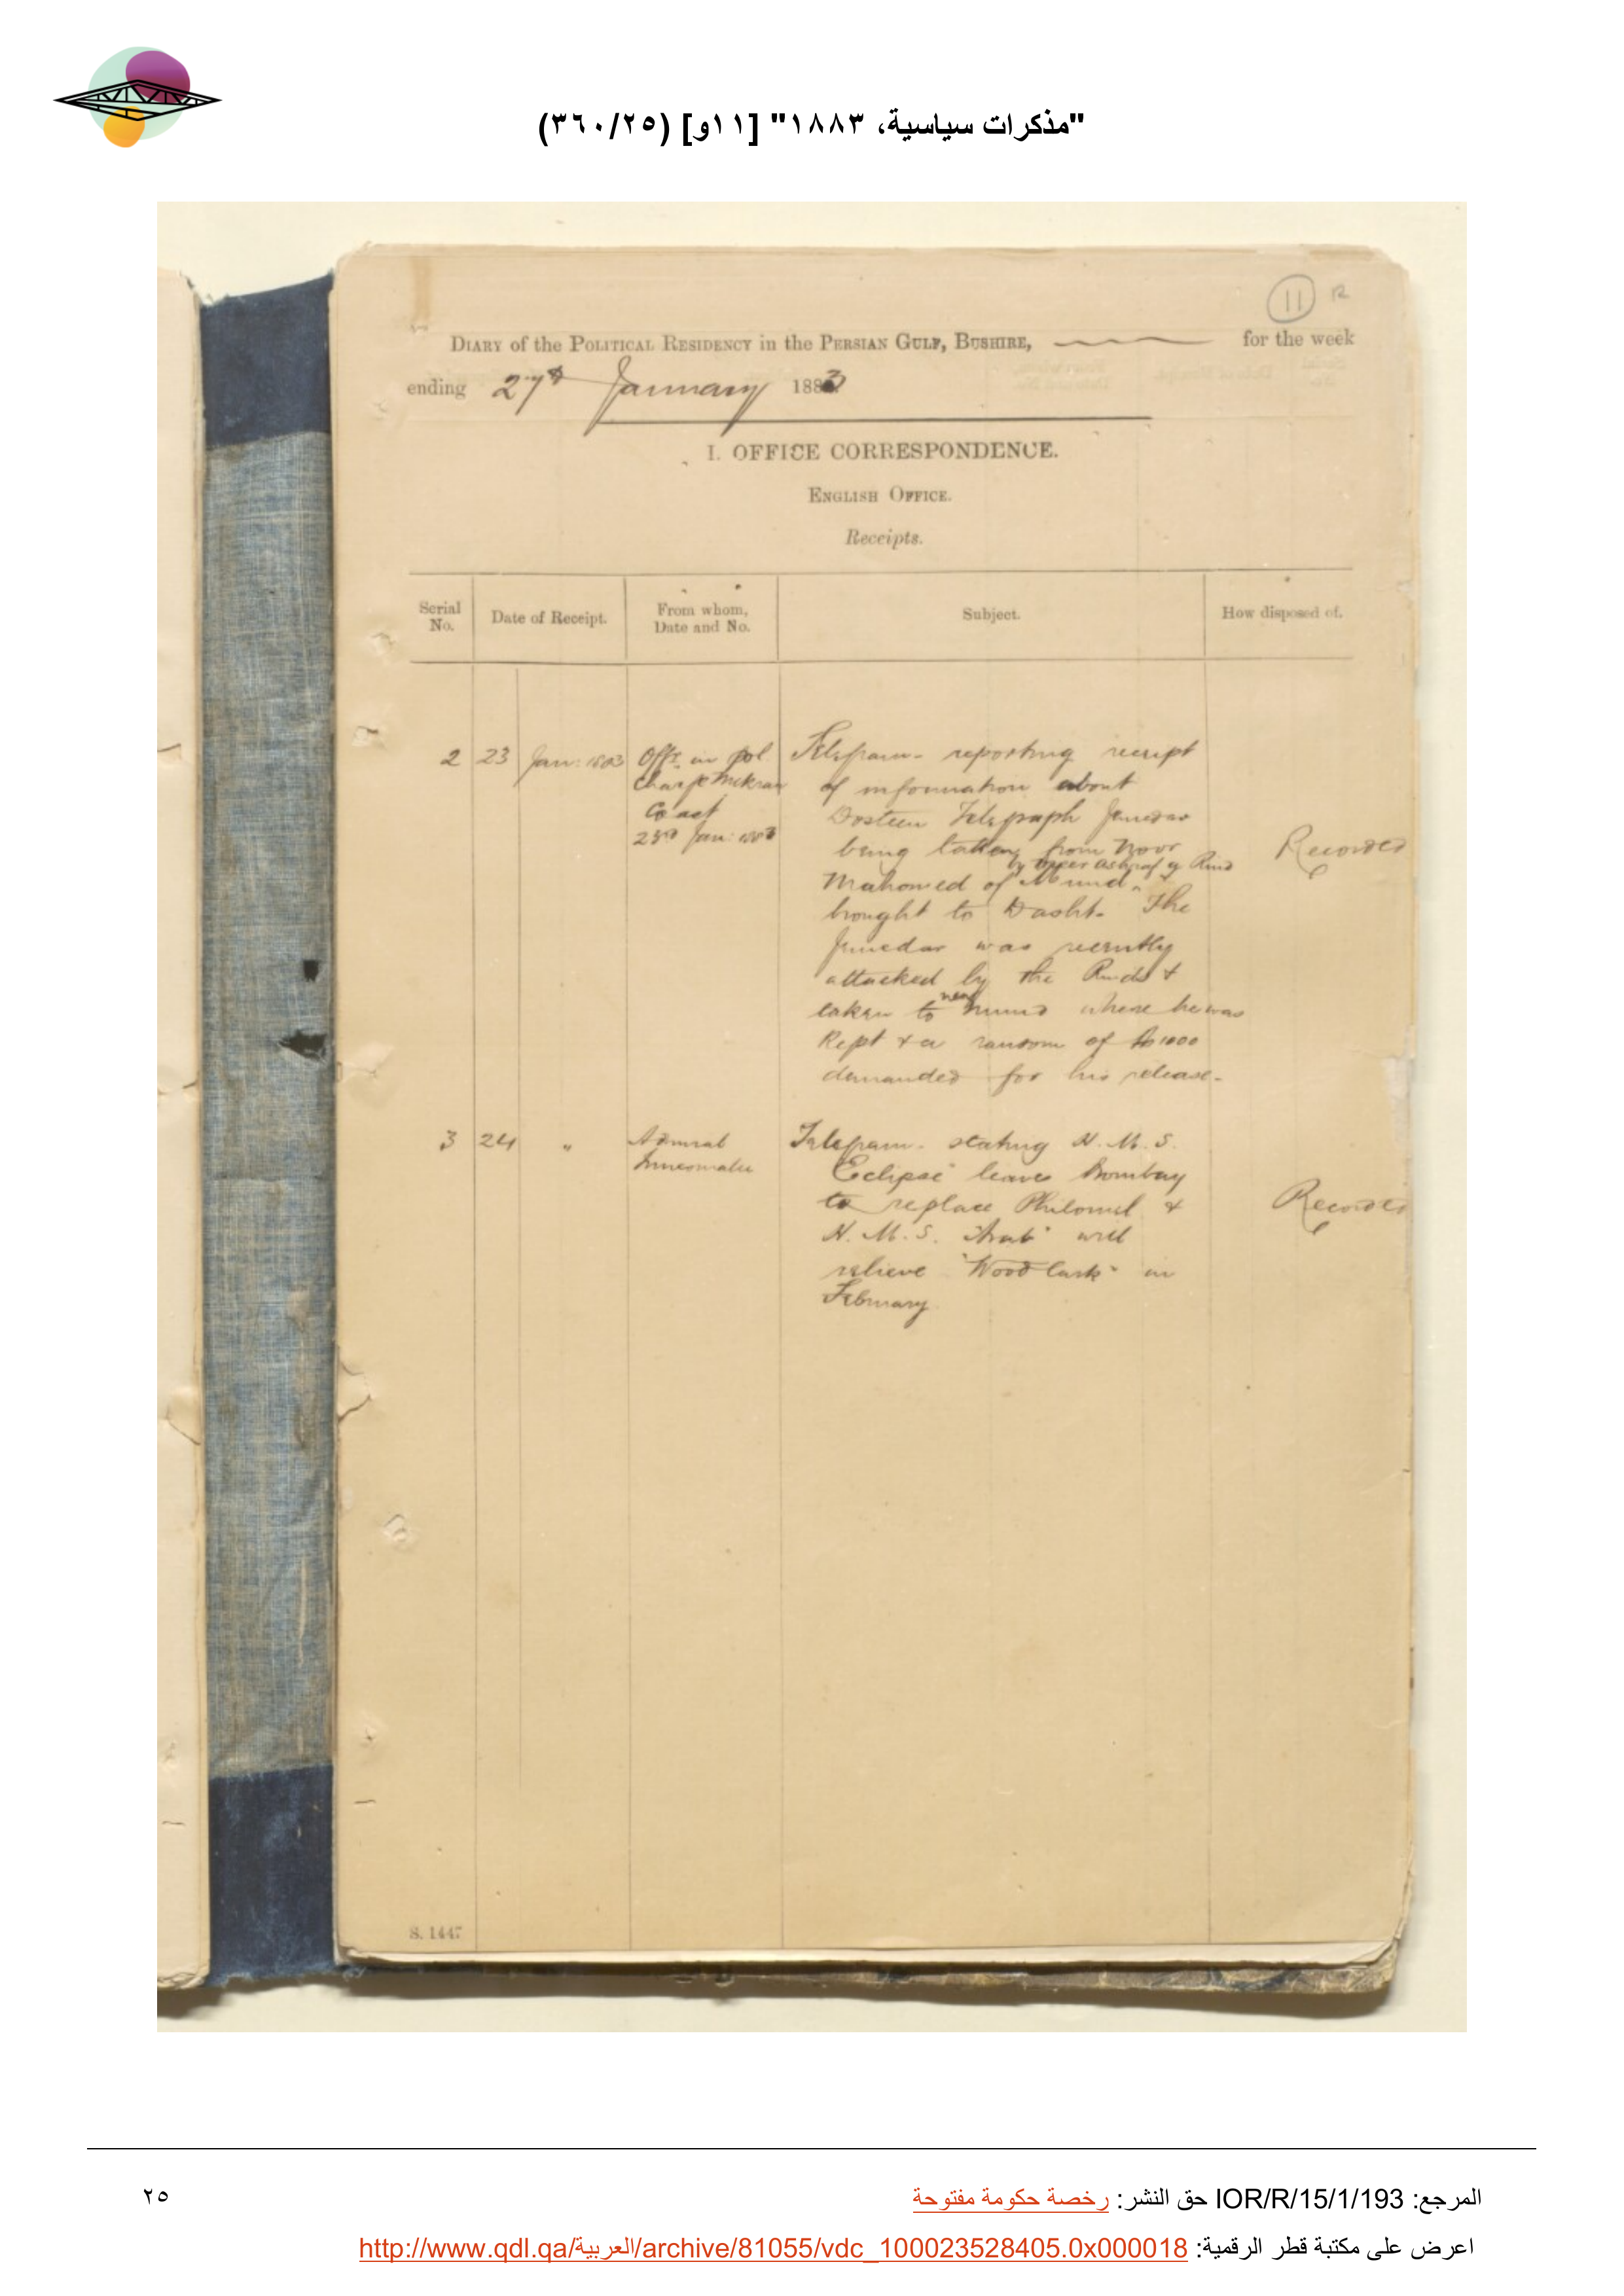 "مذكرات سياسية، ١٨٨٣" [١١و] (٣٦٠/٢٥)
11 R
DIARY of the POLITICAL RESIDENCY in the PERSIAN GULF, BUSHIRE, for the week
ending 27th January 1883
I. OFFICE CORRESPONDENCE.
ENGLISH OFFICE.
Receipts.
Serial No. Date of Receipt. From whom, Date and No. Subject. How disposed of.
2 23 Jan: 1883 Offr. in pol Telegram - reporting receipt
Charge Mekran of information about
Coast Dosteen Telegraph Jemedar
23rd Jan: 1883 being taken from Noor Recorded
by Meer Ashraf of Rind
Mahomed of Mund
brought to Dasht. The
Jemedar was recently
attacked by the Rinds &
taken to near Mund where he was
Kept & a ransom of Rs 1000
demanded for his release -
3 24 " Admiral Telegram - stating H. M. S.
Trincomalee "Eclipse" leaves Bombay
to replace Philomel & Recorded
H. M. S. "Arab" will
relieve "Woodlark" in
February
S. 1447
المرجع: IOR/R/15/1/193 حق النشر: رخصة حكومة مفتوحة
٢٥
اعرض على مكتبة قطر الرقمية: http://www.qdl.qa/العربية/archive/81055/vdc_100023528405.0x000018